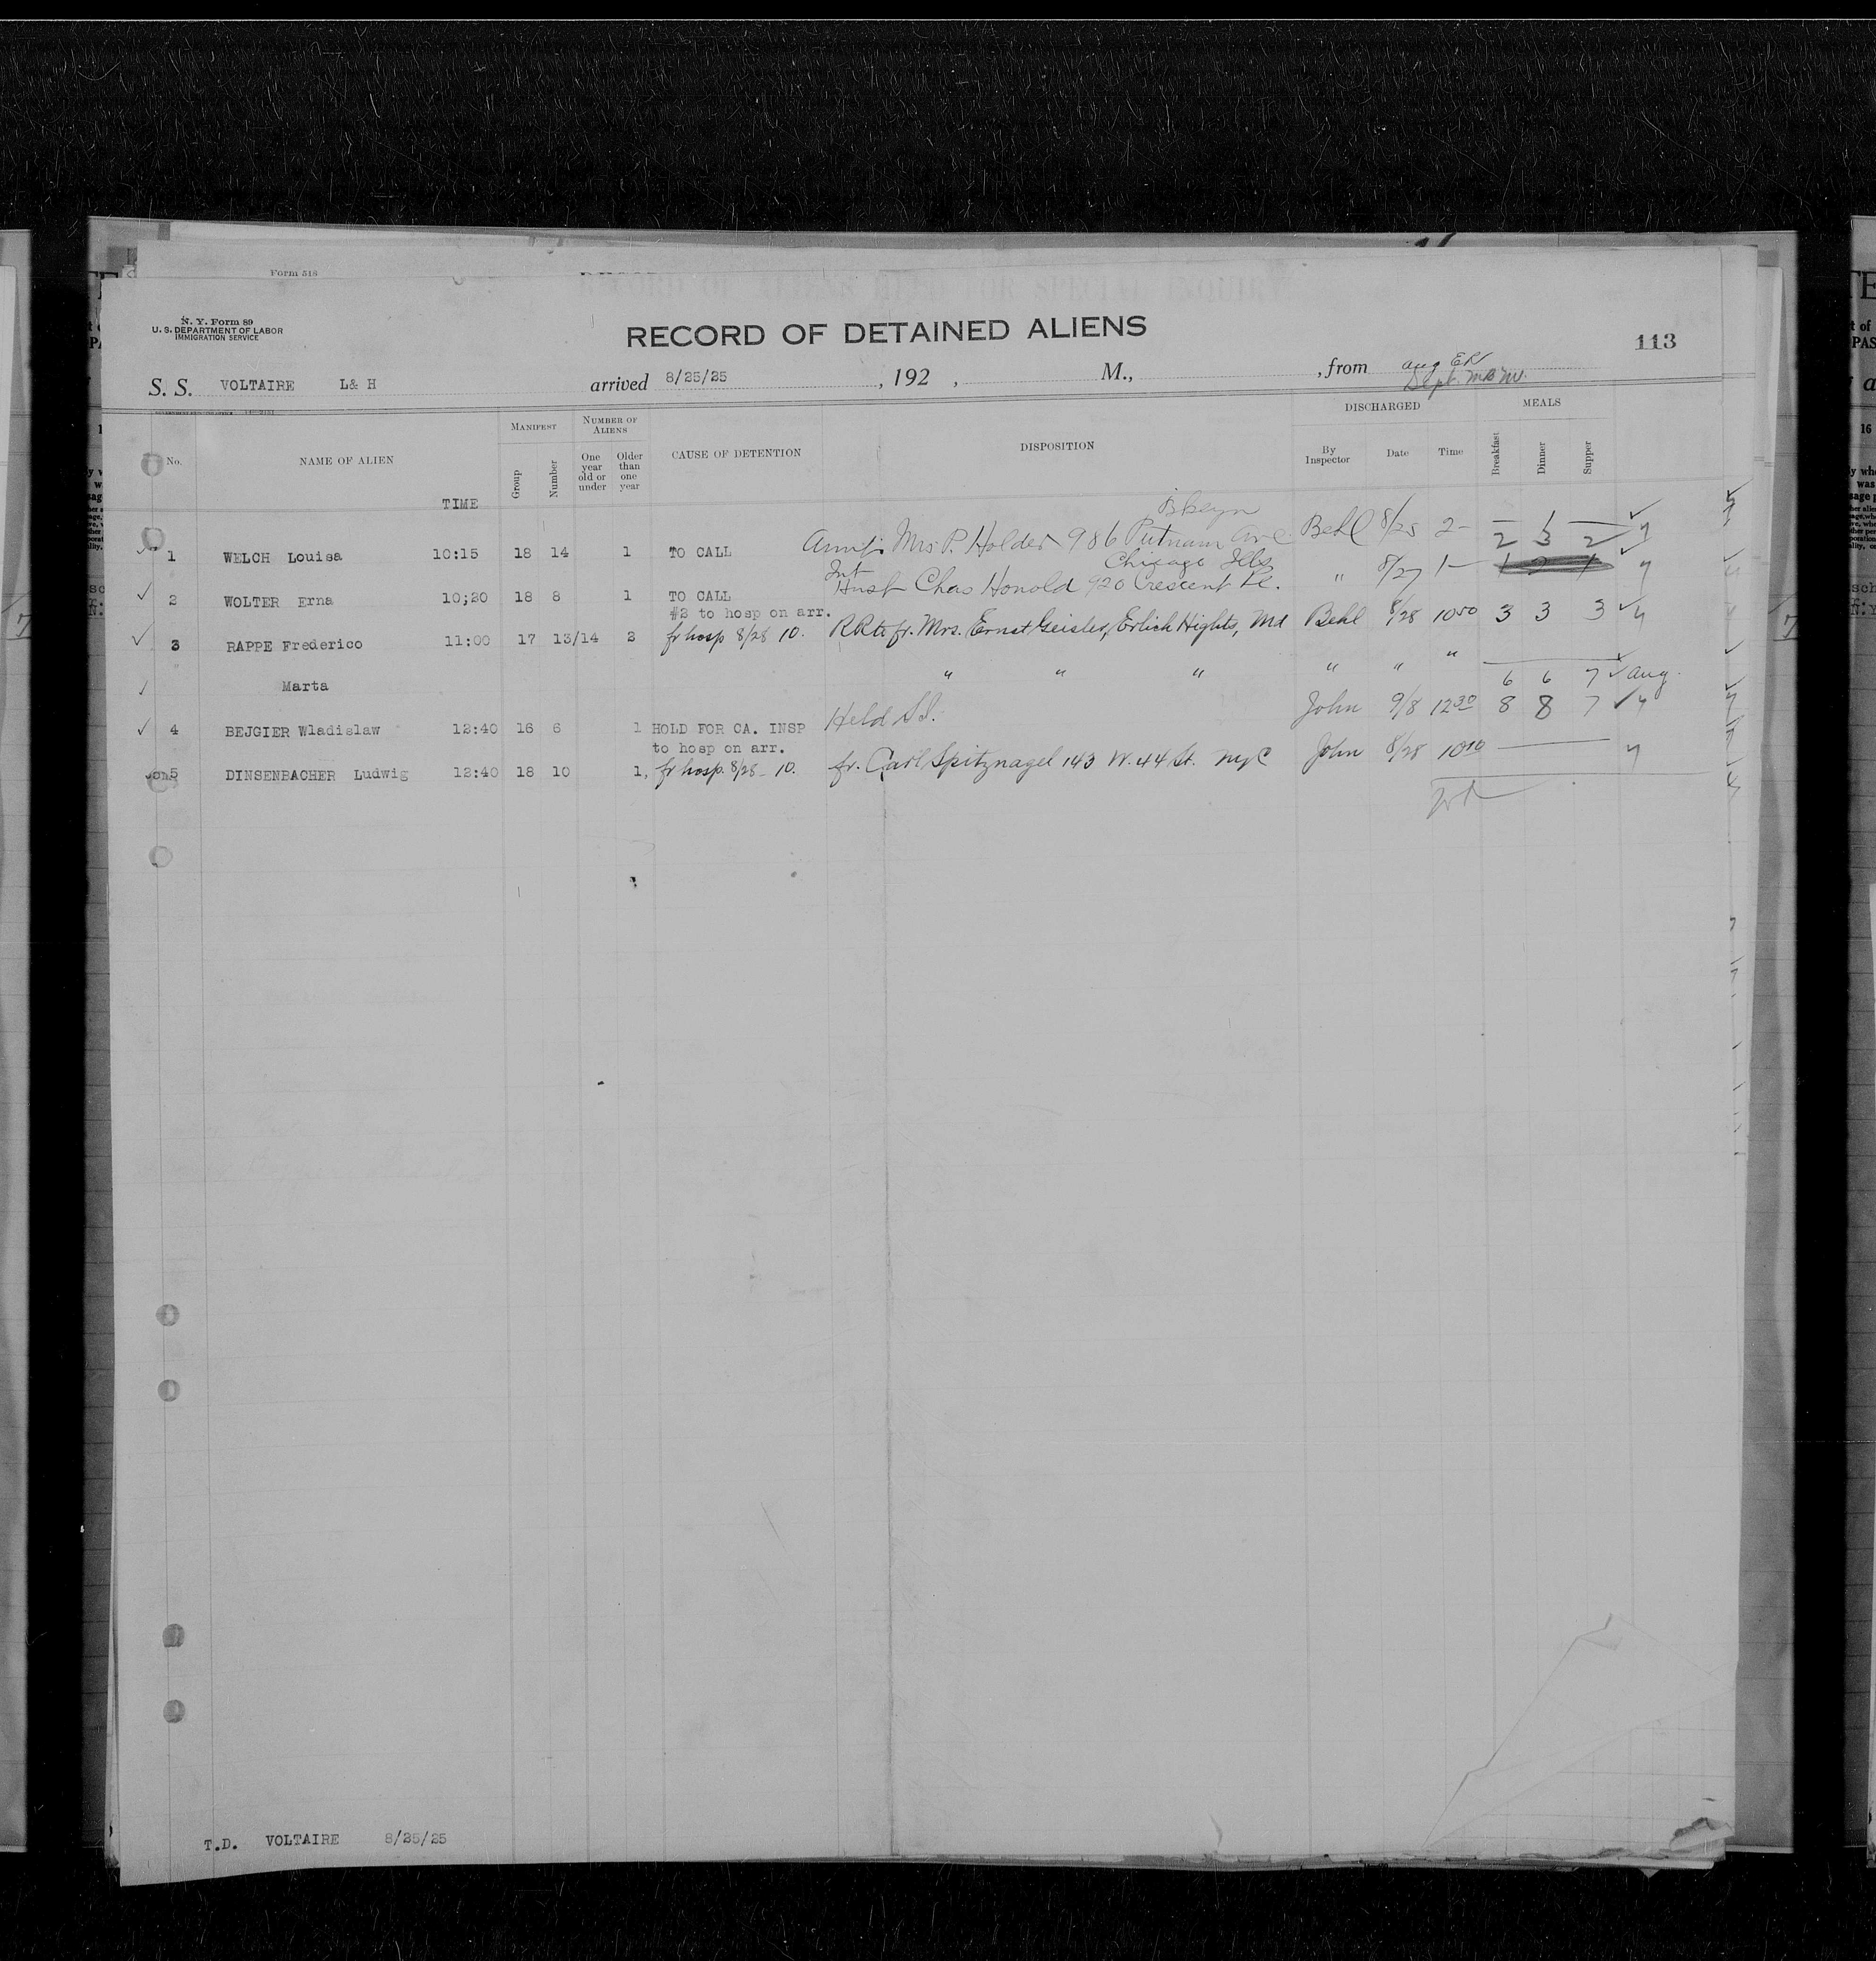 Form 518
N. Y. Form 89
U. S. DEPARTMENT OF LABOR
IMMIGRATION SERVICE
RECORD OF DETAINED ALIENS
113
S. S. VOLTAIRE L& H arrived 8/25/25 , 192 , M., , from Aug ER
Sept.
No. NAME OF ALIEN TIME MANIFEST Group Number NUMBER OF ALIENS One year old or under Older than one year CAUSE OF DETENTION DISPOSITION DISCHARGED By Inspector Date Time MEALS Breakfast Dinner Supper
Bklyn
1 WELCH Louisa 10:15 18 14 1 TO CALL Aunt: Mrs P. Holder 986 Putnam Ave Behl 8/25 2- — 1 —
Chicago Ills 2 3 2
2 WOLTER Erna 10;20 18 8 1 TO CALL Int Husb Chas Honold 920 Crescent Pl. " 8/27 1-
#2 to hosp on arr.
3 RAPPE Frederico 11:00 17 13/14 2 fr hosp 8/28 10. RR to fr. Mrs. Ernst Geisler, Erlich Hights, Md Behl 8/28 10 50 3 3 3
" Marta " " " " " "
6 6 7 Aug.
4 BEJGIER Wladislaw 12:40 16 6 1 HOLD FOR CA. INSP Held S.I. John 9/8 12 30 8 8 7
to hosp on arr.
5 DINSENBACHER Ludwig 12:40 18 10 1, fr hosp. 8/28 - 10. fr. Carl Spitznagel 143 W. 44 St. NYC John 8/28 10 10
T.D. VOLTAIRE 8/25/25